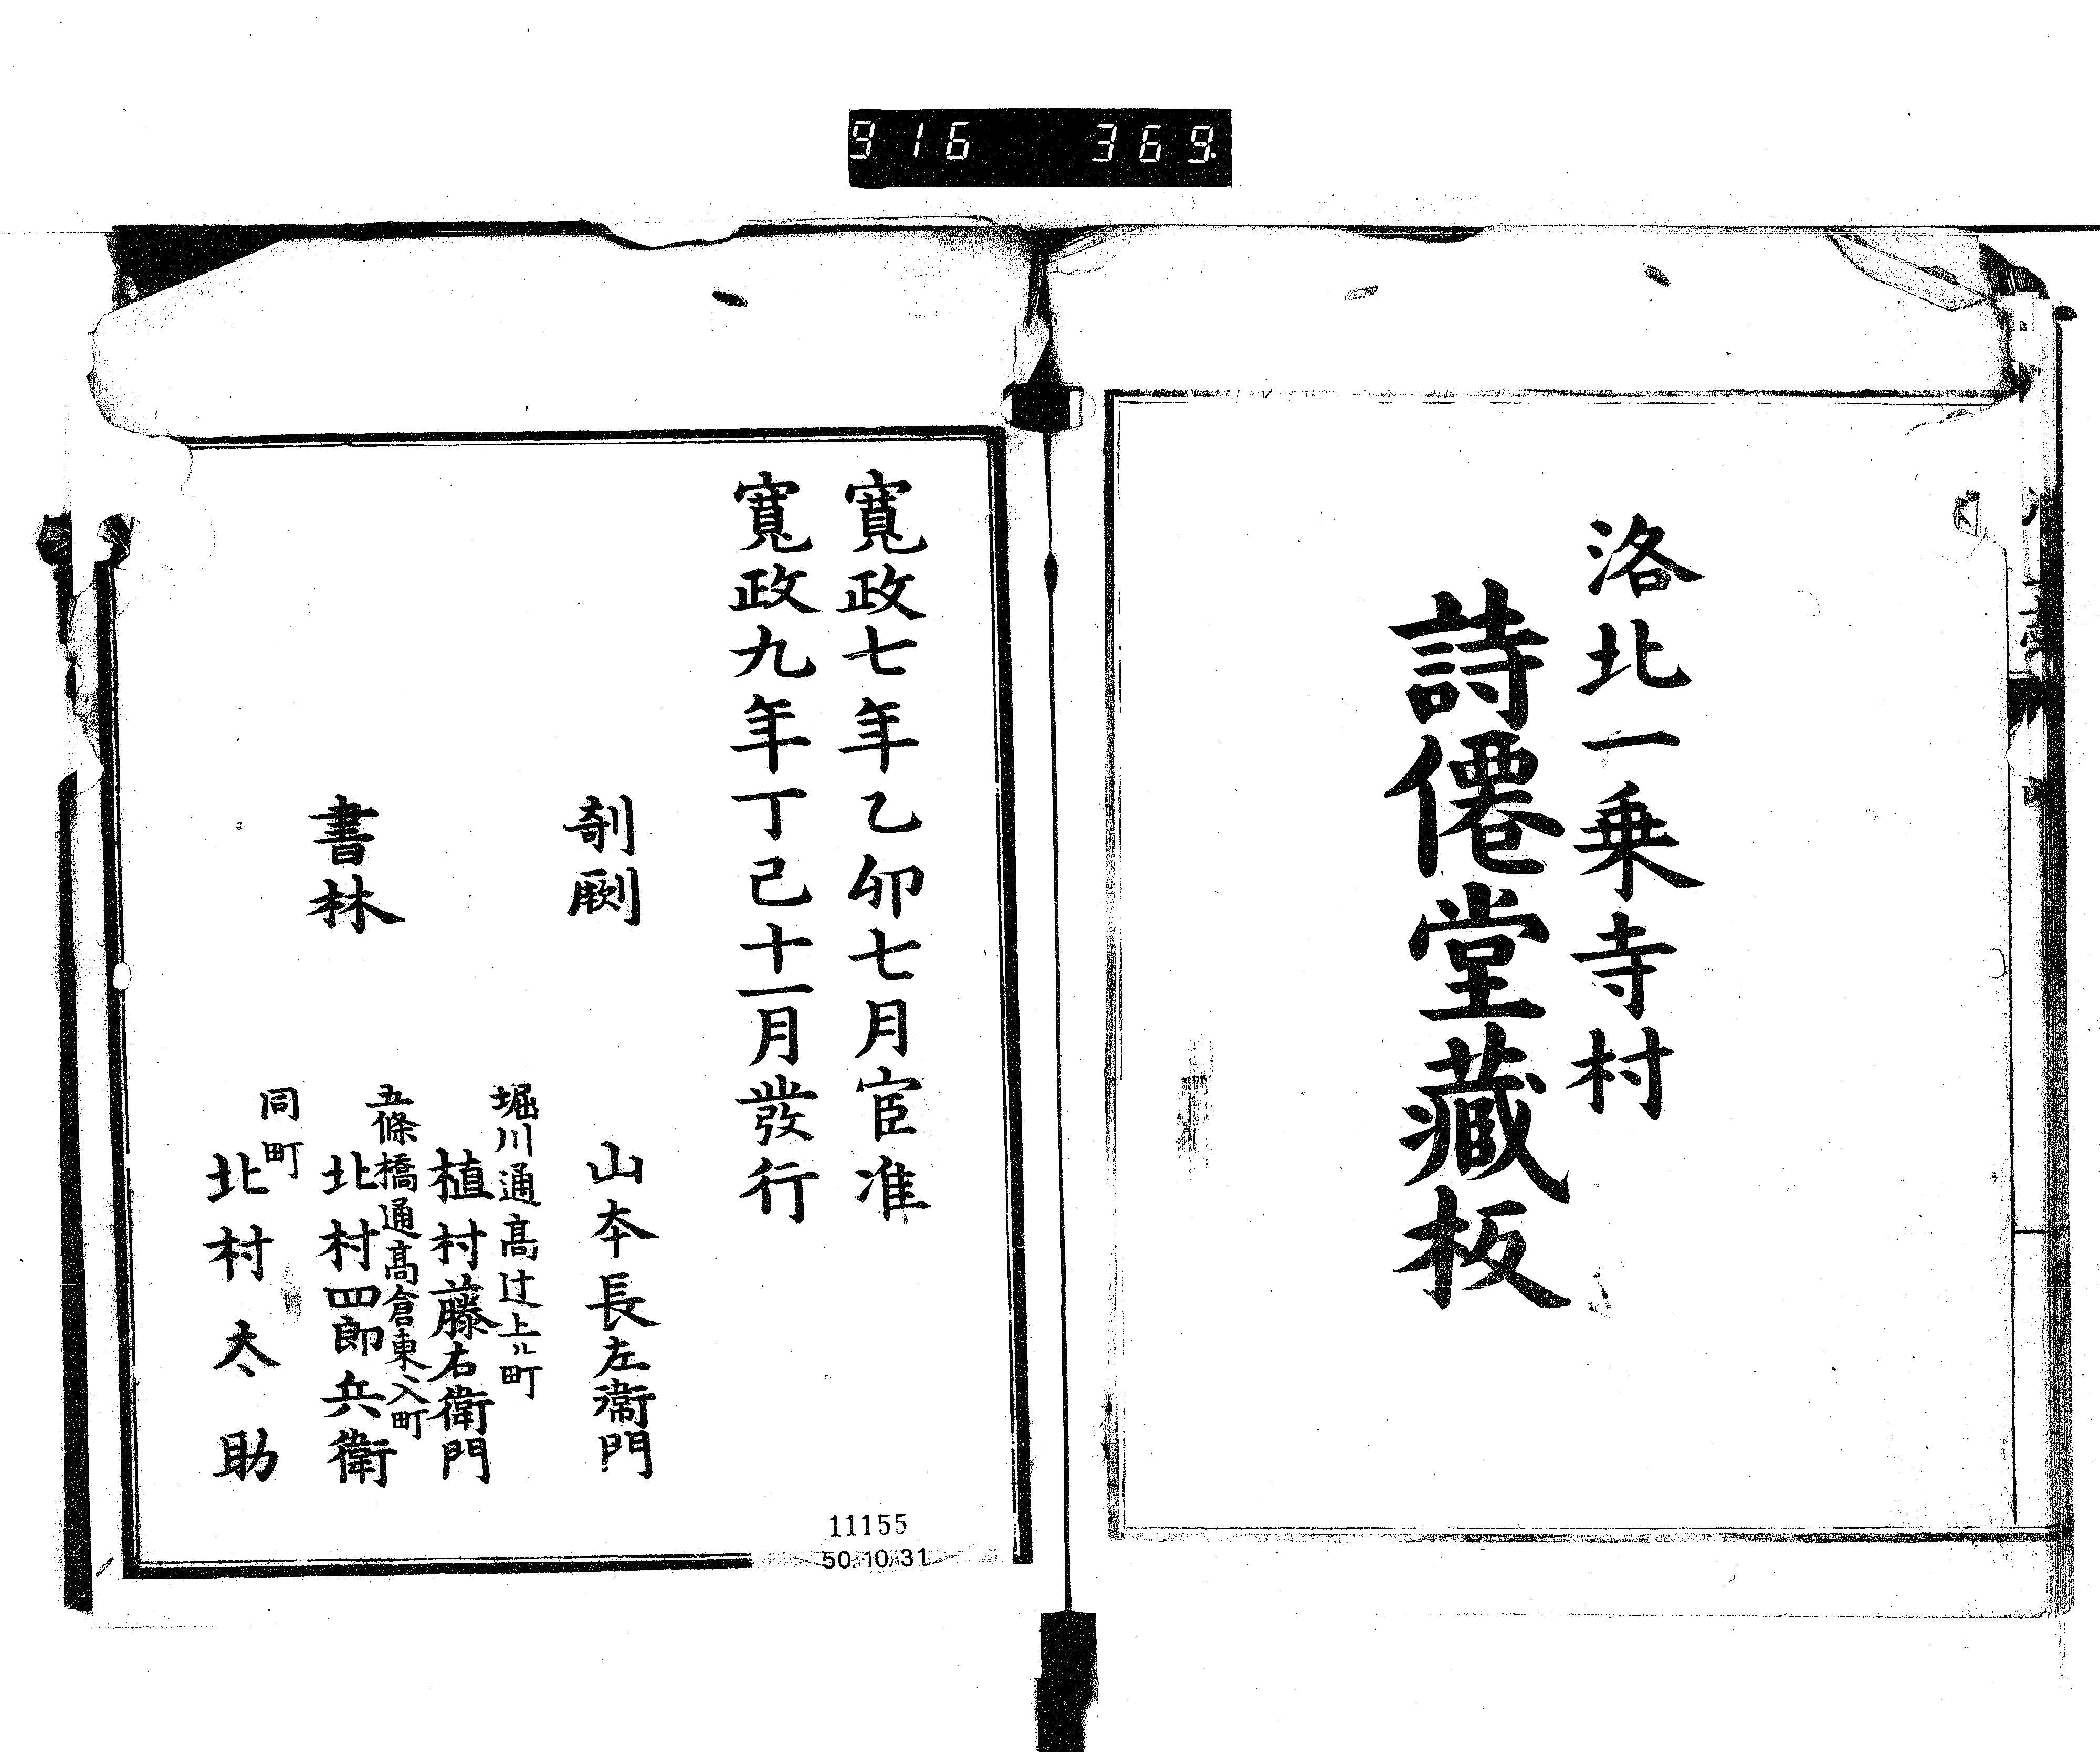 916 369
洛北一乗寺村
詩僊堂藏板
寛政七年乙卯七月宦准
寛政九年丁巳十一月發行
剞劂
山本長左衞門
書林
堀川通髙辻上ル町
植村藤右衞門
五條橋通髙倉東ヘ入町
北村四郎兵衞
同町
北村太助
11155
50.10.31